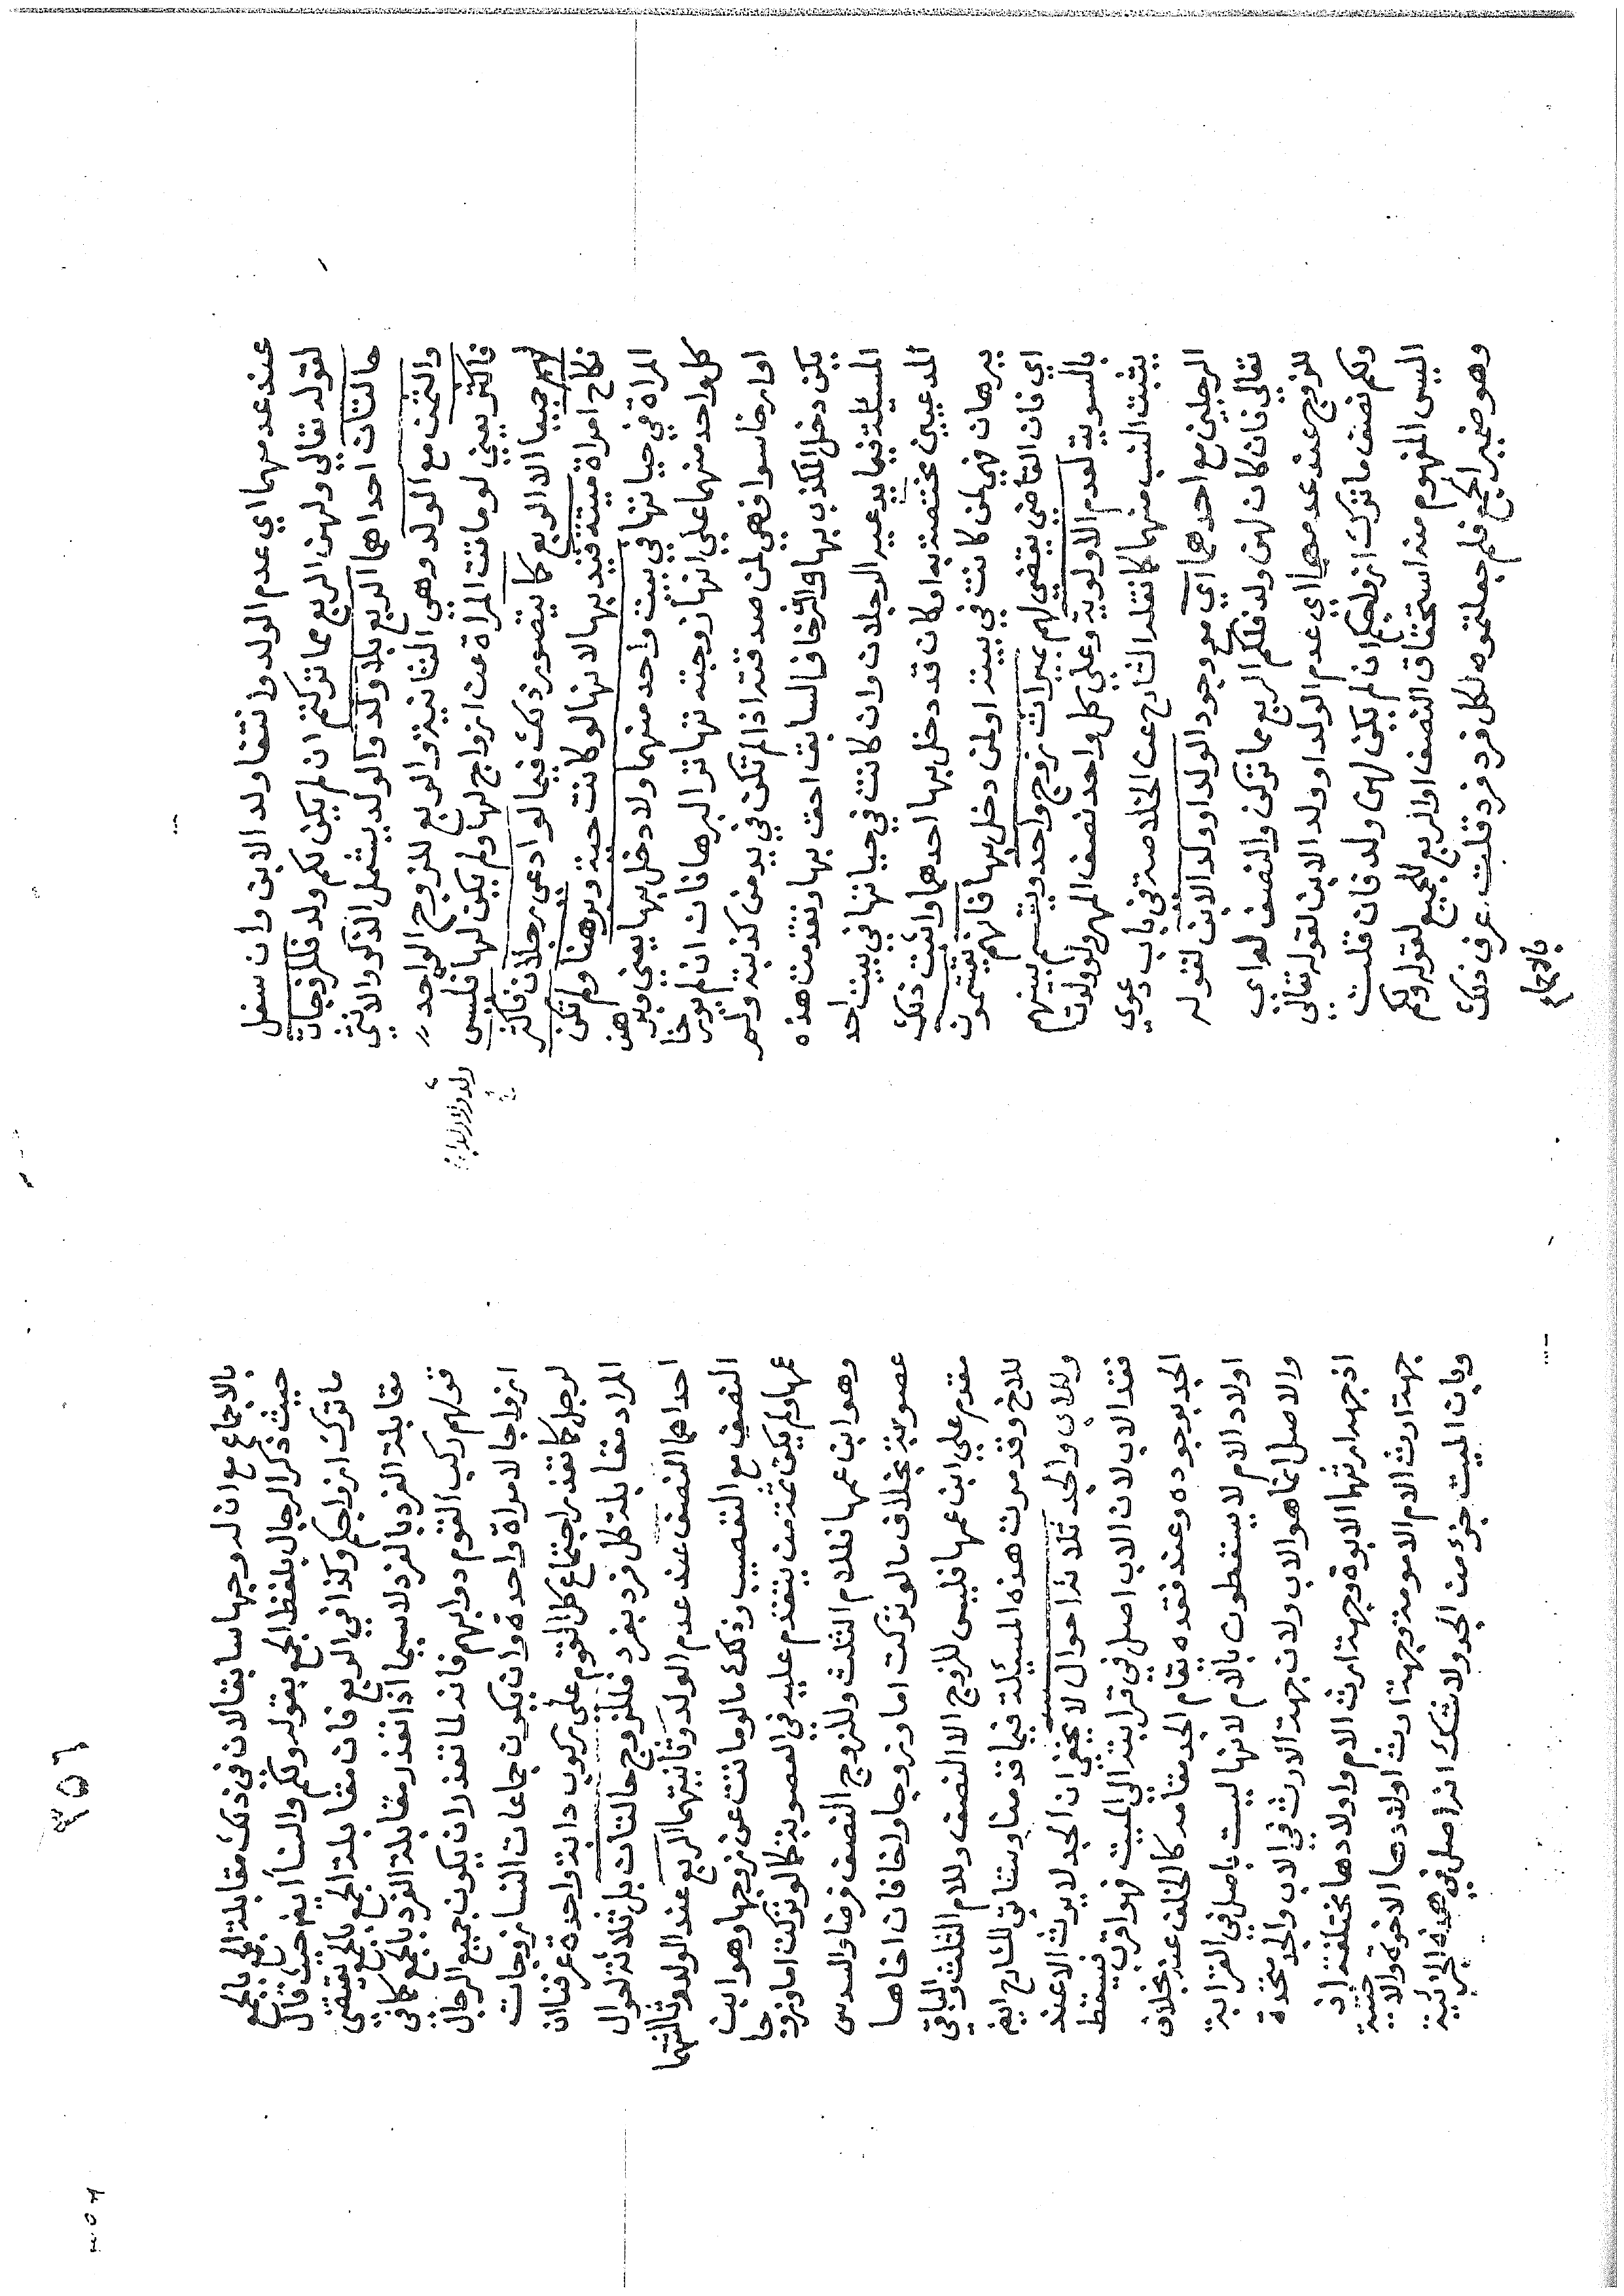 عند عدمهما اي عدم الولد وانتفا ولد الابن وان سفل
لقوله تعالى ولهن الربع مما تركتم ان لم يكن لكم ولد فللزوجات
حالتان احداهما الربع بلا ولد والولد يشمل الذكر والانثى
والثمن مع الولد وهي الثانية والربع للزوج الواحد
فاكثر يعني لو ماتت المراة عن ازواج لها ولم يكن لها فليس
لهم جميعا الا الربع كما يتصور ذلك فيما لو ادعى رجلان فاكثر
نكاح امراة ميتة قيد بها لانها لو كانت حية وبرهنا ولم تكن
المراة في حياتها في بيت واحد منهما ولا دخل بها يعني وبرهن
كل واحد منهما على انها زوجته تهاتر البرهانان ان لم يورخا
او ارخا سوا فهي لمن صدقته اذا لم تكن في يد من كذبته ولم
يكن دخل المكذب بها وان ارخا فالسابق احق بها وتقدمت هذه
المسئلة فيما يدعيه الرجلان وان كانت في حياتها في بيت احد
المدعيين مختصة به او كان قد دخل بها احدهما واثبت ذلك
ببرهان فهي لمن كانت في بيته او لمن دخل بها فانهم يقتسمون
اي فان القاضي يقضي لهم بميراث زوج واحد ويقسم بينهم
بالسوية لعدم الاولوية وعلى كل واحد نصف المهر ولو ولدت
يثبت النسب منهما كما نقله الشارح عن الخلاصة في باب دعوى
الرجلين مع احدهما اي مع وجود الولد او ولد الابن لقوله
تعالى فان كان لهن ولد فلكم الربع مما تركن والنصف له اي
للزوج عند عدمهما اي عدم الولد او ولد الابن لقوله تعالى
ولكم نصف ما ترك ازواجكم ان لم يكن لهن ولد فان قلت
اليس المفهوم منه استحقاق النصف او الربع للجميع لقوله ولكم
وهو ضمير الجمع فلم جعلتموه لكل فرد فرد قلت عرف ذلك
بالاجماع
٣٥٦
بالاجماع مع ان له وجها سابقا لان في ذلك مقابلة الجمع بالجمع
حيث ذكر الرجال بلفظ الجمع بقوله ولكم والنسا ايضا حيث قال
ما ترك ازواجكم وكذا في الربع فان مقابلة الجمع بالجمع يقتضي
مقابلة الفرد بالفرد لاسيما اذا تعذر مقابلة الفرد بالجمع كما في
قولهم ركب القوم دوابهم فانه لما تعذر ان يكون جميع الرجال
ازواجا لامراة واحدة وان يكون جماعات النسا زوجات
لرجل كما تعذر اجتماع كل القوم على ركوب دابة واحدة عرفنا ان
المراد مقابلة كل فرد بفرد فللزوج حالتان بل ثلاثة احوال
احداهما النصف عند عدم الولد وثانيتهما الربع عند الولد وثالثتهما
النصف مع التعصيب وذلك ما لو ماتت عن زوجها وهو ابن
عمها ولم يكن ثمة من يتقدم عليه في العصوبة كما لو تركت اما وزوجا
وهو ابن عمها فللام الثلث وللزوج النصف فرضا والسدس
عصوبة بخلاف ما لو تركت اما وزوجا واخا فان اخاها
مقدم على ابن عمها فليس للزوج الا النصف وللام الثلث والباقي
للاخ وقد مرت هذه المسئلة فيما قدمنا وستاتي للشارح ايضا
وللاب والجد ثلاثة احوال لا يخفى ان الجد لا يرث الا عند
فقد الاب لان الاب اصل في قرابته الى الميت فهو اقرب فيسقط
الجد بوجوده وعند فقده يقام الجد مقامه كالخلف عنه بخلاف
اولاد الام لا يسقطون بالام لانها ليست باصل في القرابة
والاصل انما هو الاب ولان جهة الارث في الاب والجد متحدة
اذ جهة ارثها الابوة وجهة ارث الام واولادها مختلفة اذ
جهة ارث الام الامومة وجهة ارث اولادها الاخوة والابنية
وبان الميت جزء من الجد ولا شك انه اصل في هذه الجزئية